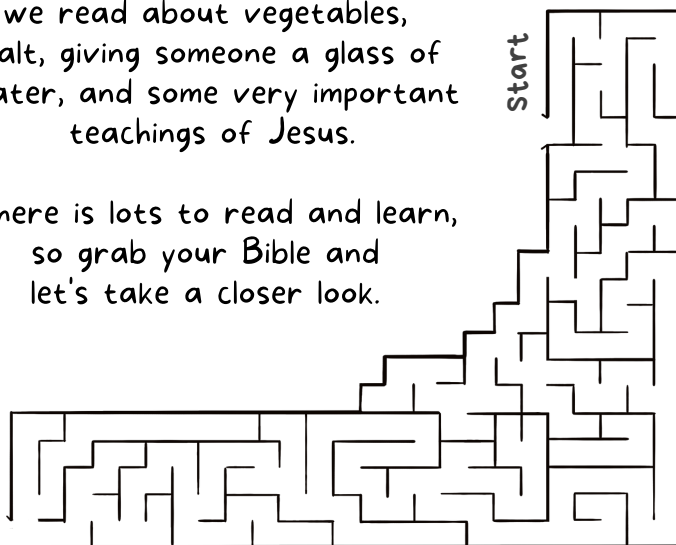 we read about vegetables,
alt, giving someone a glass of
ater, and some very important
teachings of Jesus.
here is lots to read and learn,
so grab your Bible and
let's take a closer look.
Start